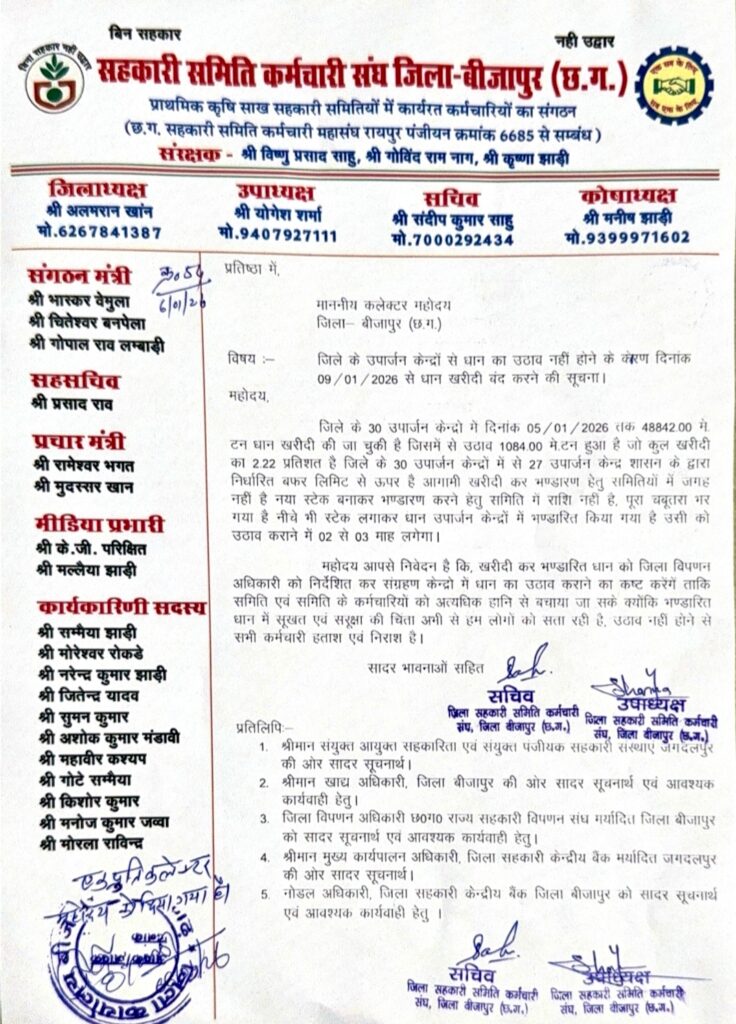 बिन सहकार
नही उद्वार
बिना सहकार नहीं उद्धार
सहकारी समिति कर्मचारी संघ जिला-बीजापुर (छ.ग.)
एक सब के लिए
सब एक के लिए
प्राथमिक कृषि साख सहकारी समितियों में कार्यरत कर्मचारियों का संगठन
(छ.ग. सहकारी समिति कर्मचारी महासंघ रायपुर पंजीयन क्रमांक 6685 से सम्बंध)
संरक्षक - श्री विष्णु प्रसाद साहु, श्री गोविंद राम नाग, श्री कृष्णा झाड़ी
जिलाध्यक्ष
श्री अलमरान खांन
मो.6267841387
उपाध्यक्ष
श्री योगेश शर्मा
मो.9407927111
सचिव
श्री संदीप कुमार साहु
मो.7000292434
कोषाध्यक्ष
श्री मनीष झाड़ी
मो.9399971602
संगठन मंत्री
श्री भास्कर वेमुला
श्री चितेश्वर बनपेला
श्री गोपाल राव लम्बाड़ी
सहसचिव
श्री प्रसाद राव
प्रचार मंत्री
श्री रामेश्वर भगत
श्री मुदस्सर खान
मीडिया प्रभारी
श्री के.जी. परिक्षित
श्री मल्लैया झाड़ी
कार्यकारिणी सदस्य
श्री सम्मैया झाड़ी
श्री मोरेश्वर रोकडे
श्री नरेन्द्र कुमार झाड़ी
श्री जितेन्द्र यादव
श्री सुमन कुमार
श्री अशोक कुमार मंडावी
श्री महावीर कश्यप
श्री गोटे सम्मैया
श्री किशोर कुमार
श्री मनोज कुमार जव्वा
श्री मोरला राविन्द्र
क्र० 54
6/01/26
प्रतिष्ठा में,
माननीय कलेक्टर महोदय
जिला– बीजापुर (छ.ग.)
विषय :– जिले के उपार्जन केन्द्रों से धान का उठाव नहीं होने के कारण दिनांक
09/01/2026 से धान खरीदी बंद करने की सूचना।
महोदय,
जिले के 30 उपार्जन केन्द्रो में दिनांक 05/01/2026 तक 48842.00 मे.
टन धान खरीदी की जा चुकी है जिसमें से उठाव 1084.00 मे.टन हुआ है जो कुल खरीदी
का 2.22 प्रतिशत है जिले के 30 उपार्जन केन्द्रों में से 27 उपार्जन केन्द्र शासन के द्वारा
निर्धारित बफर लिमिट से ऊपर है आगामी खरीदी कर भण्डारण हेतु समितियों में जगह
नहीं है नया स्टेक बनाकर भण्डारण करने हेतु समिति में राशि नहीं है, पूरा चबूतरा भर
गया है नीचे भी स्टेक लगाकर धान उपार्जन केन्द्रों में भण्डारित किया गया है उसी को
उठाव कराने में 02 से 03 माह लगेगा।
महोदय आपसे निवेदन है कि, खरीदी कर भण्डारित धान को जिला विपणन
अधिकारी को निर्देशित कर संग्रहण केन्द्रो में धान का उठाव कराने का कष्ट करेंगें ताकि
समिति एवं समिति के कर्मचारियों को अत्यधिक हानि से बचाया जा सके क्योंकि भण्डारित
धान में सूखत एवं सरृक्षा की चिंता अभी से हम लोगों को सता रही है, उठाव नहीं होने से
सभी कर्मचारी हताश एवं निराश है।
सादर भावनाओं सहित
सचिव
जिला सहकारी समिति कर्मचारी
संघ, जिला बीजापुर (छ.ग.)
Sharma
उपाध्यक्ष
जिला सहकारी समिति कर्मचारी
संघ, जिला बीजापुर (छ.ग.)
प्रतिलिपिः–
1. श्रीमान संयुक्त आयुक्त सहकारिता एवं संयुक्त पंजीयक सहकारी संस्थाएं जगदलपुर
की ओर सादर सूचनार्थ।
2. श्रीमान खाद्य अधिकारी, जिला बीजापुर की ओर सादर सूचनार्थ एवं आवश्यक
कार्यवाही हेतु।
3. जिला विपणन अधिकारी छ0ग0 राज्य सहकारी विपणन संघ मर्यादित जिला बीजापुर
को सादर सूचनार्थ एवं आवश्यक कार्यवाही हेतु।
4. श्रीमान मुख्य कार्यपालन अधिकारी, जिला सहकारी केन्द्रीय बैंक मर्यादित जगदलपुर
की ओर सादर सूचनार्थ।
5. नोडल अधिकारी, जिला सहकारी केन्द्रीय बैंक जिला बीजापुर को सादर सूचनार्थ
एवं आवश्यक कार्यवाही हेतु ।
सचिव
जिला सहकारी समिति कर्मचारी
संघ, जिला बीजापुर (छ.ग.)
उपाध्यक्ष
जिला सहकारी समिति कर्मचारी
संघ, जिला बीजापुर (छ.ग.)
एक प्रति कलेक्टर
महोदय को दिया गया है।